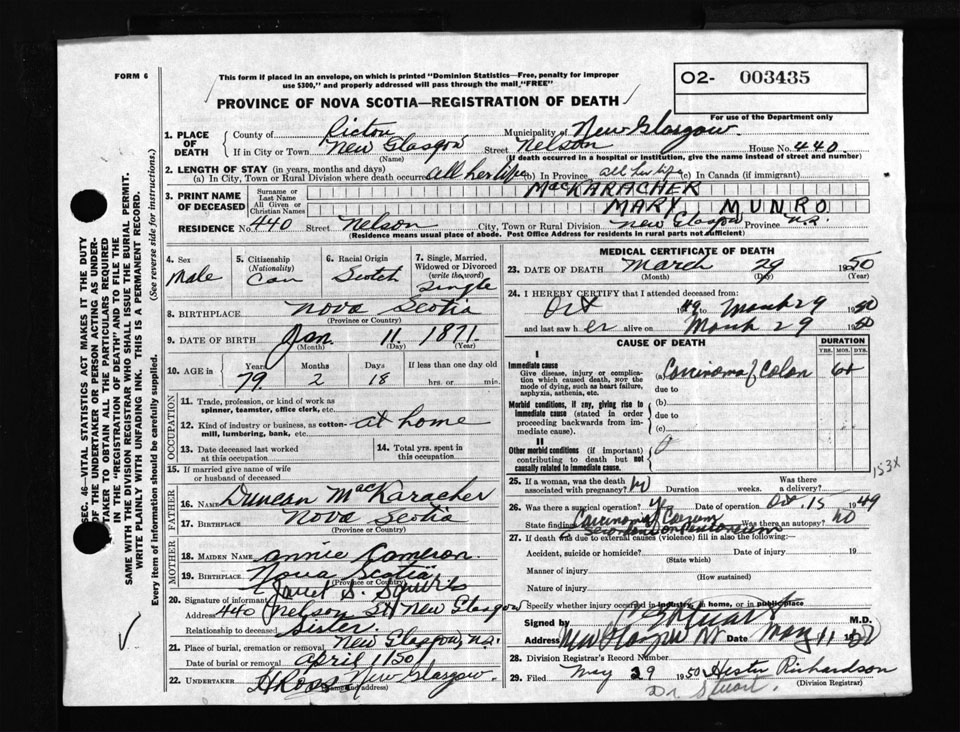 FORM 6
This form if placed in an envelope, on which is printed "Dominion Statistics—Free, penalty for improper
use $300," and properly addressed will pass through the mail "FREE"
O2- 003435
For use of the Department only
PROVINCE OF NOVA SCOTIA—REGISTRATION OF DEATH
1. PLACE OF DEATH County of Pictou Municipality of New Glasgow
If in City or Town New Glasgow (Name) Street Nelson House No. 440
(If death occurred in a hospital or institution, give the name instead of street and number)
2. LENGTH OF STAY (in years, months and days)
(a) In City, Town or Rural Division where death occurred all her life (b) In Province all her life (c) In Canada (if immigrant)
3. PRINT NAME OF DECEASED Surname or Last Name MACKARACHER
All Given or Christian Names MARY MUNRO
RESIDENCE No. 440 Street Nelson City, Town or Rural Division New Glasgow Province N.S.
(Residence means usual place of abode. Post Office Address for residents in rural parts not sufficient)
4. Sex Male
5. Citizenship (Nationality) Can
6. Racial Origin Scotch
7. Single, Married, Widowed or Divorced (write the word) Single
8. BIRTHPLACE Nova Scotia (Province or Country)
9. DATE OF BIRTH Jan (Month) 11 (Day) 1871 (Year)
10. AGE in Years 79 Months 2 Days 18 If less than one day old hrs. or min.
OCCUPATION
11. Trade, profession, or kind of work as spinner, teamster, office clerk, etc.
12. Kind of industry or business, as cotton-mill, lumbering, bank, etc. at home
13. Date deceased last worked at this occupation
14. Total yrs. spent in this occupation
15. If married give name of wife or husband of deceased
FATHER
16. NAME Duncan MacKaracher
17. BIRTHPLACE Nova Scotia (Province or Country)
MOTHER
18. MAIDEN NAME Annie Cameron
19. BIRTHPLACE Nova Scotia (Province or Country)
20. Signature of informant Janet S.
Address 440 Nelson St New Glasgow
Relationship to deceased Sister
21. Place of burial, cremation or removal New Glasgow, N.S.
Date of burial or removal April 1 1950
22. UNDERTAKER H Ross New Glasgow (Name and address)
MEDICAL CERTIFICATE OF DEATH
23. DATE OF DEATH March (Month) 29 (Day) 1950 (Year)
24. I HEREBY CERTIFY that I attended deceased from:
Oct 1949 to March 29 1950
and last saw her alive on March 29 1950
CAUSE OF DEATH
DURATION
YRS. MOS. DYS.
I
Immediate cause
Give disease, injury or complication which caused death, nor the mode of dying, such as heart failure, asphyxia, asthenia, etc.
(a) Carcinoma of Colon
due to
Morbid conditions, if any, giving rise to immediate cause (stated in order proceeding backwards from immediate cause).
(b)
due to
(c)
II
Other morbid conditions (if important) contributing to death but not causally related to immediate cause.
153X
25. If a woman, was the death associated with pregnancy? no Duration weeks. Was there a delivery?
26. Was there a surgical operation? Yes Date of operation Oct. 15 1949
State finding Carcinoma Cecum Was there an autopsy? no
27. If death was due to external causes (violence) fill in also the following:
Accident, suicide or homicide? (State which) Date of injury 19
Manner of injury (How sustained)
Nature of injury
Specify whether injury occurred in industry, in home, or in public place
Signed by Stuart M.D.
Address New Glasgow NS Date May 11 1950
28. Division Registrar's Record Number
29. Filed May 29 1950 Hester Richardson
(Division Registrar)
Dr Stuart.
SEC. 46—VITAL STATISTICS ACT MAKES IT THE DUTY
OF THE UNDERTAKER OR PERSON ACTING AS UNDER-
TAKER TO OBTAIN ALL THE PARTICULARS REQUIRED
IN THE "REGISTRATION OF DEATH" AND TO FILE THE
SAME WITH THE DIVISION REGISTRAR WHO SHALL ISSUE THE BURIAL PERMIT.
WRITE PLAINLY WITH UNFADING INK. THIS IS A PERMANENT RECORD.
Every item of information should be carefully supplied. (See reverse side for instructions.)